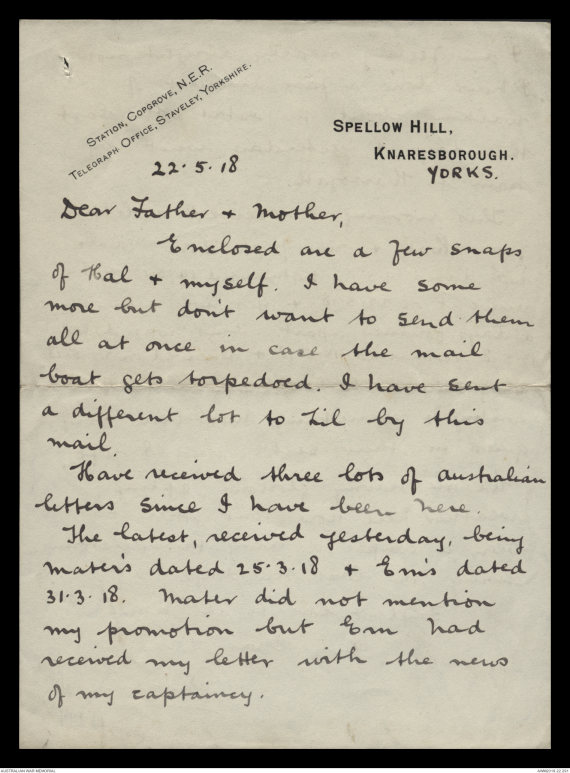 STATION, COPGROVE, N.E.R.
TELEGRAPH OFFICE, STAVELEY, YORKSHIRE.
SPELLOW HILL,
KNARESBOROUGH.
YORKS.
22.5.18
Dear Father & Mother,
Enclosed are a few snaps
of Hal & myself. I have some
more but don't want to send them
all at once in case the mail
boat gets torpedoed. I have sent
a different lot to Lil by this
mail.
Have received three lots of australian
letters since I have been here.
The latest, received yesterday, being
Mater's dated 25.3.18 & Em's dated
31.3.18. Mater did not mention
my promotion but Em had
received my letter with the news
of my captaincy.
AUSTRALIAN WAR MEMORIAL